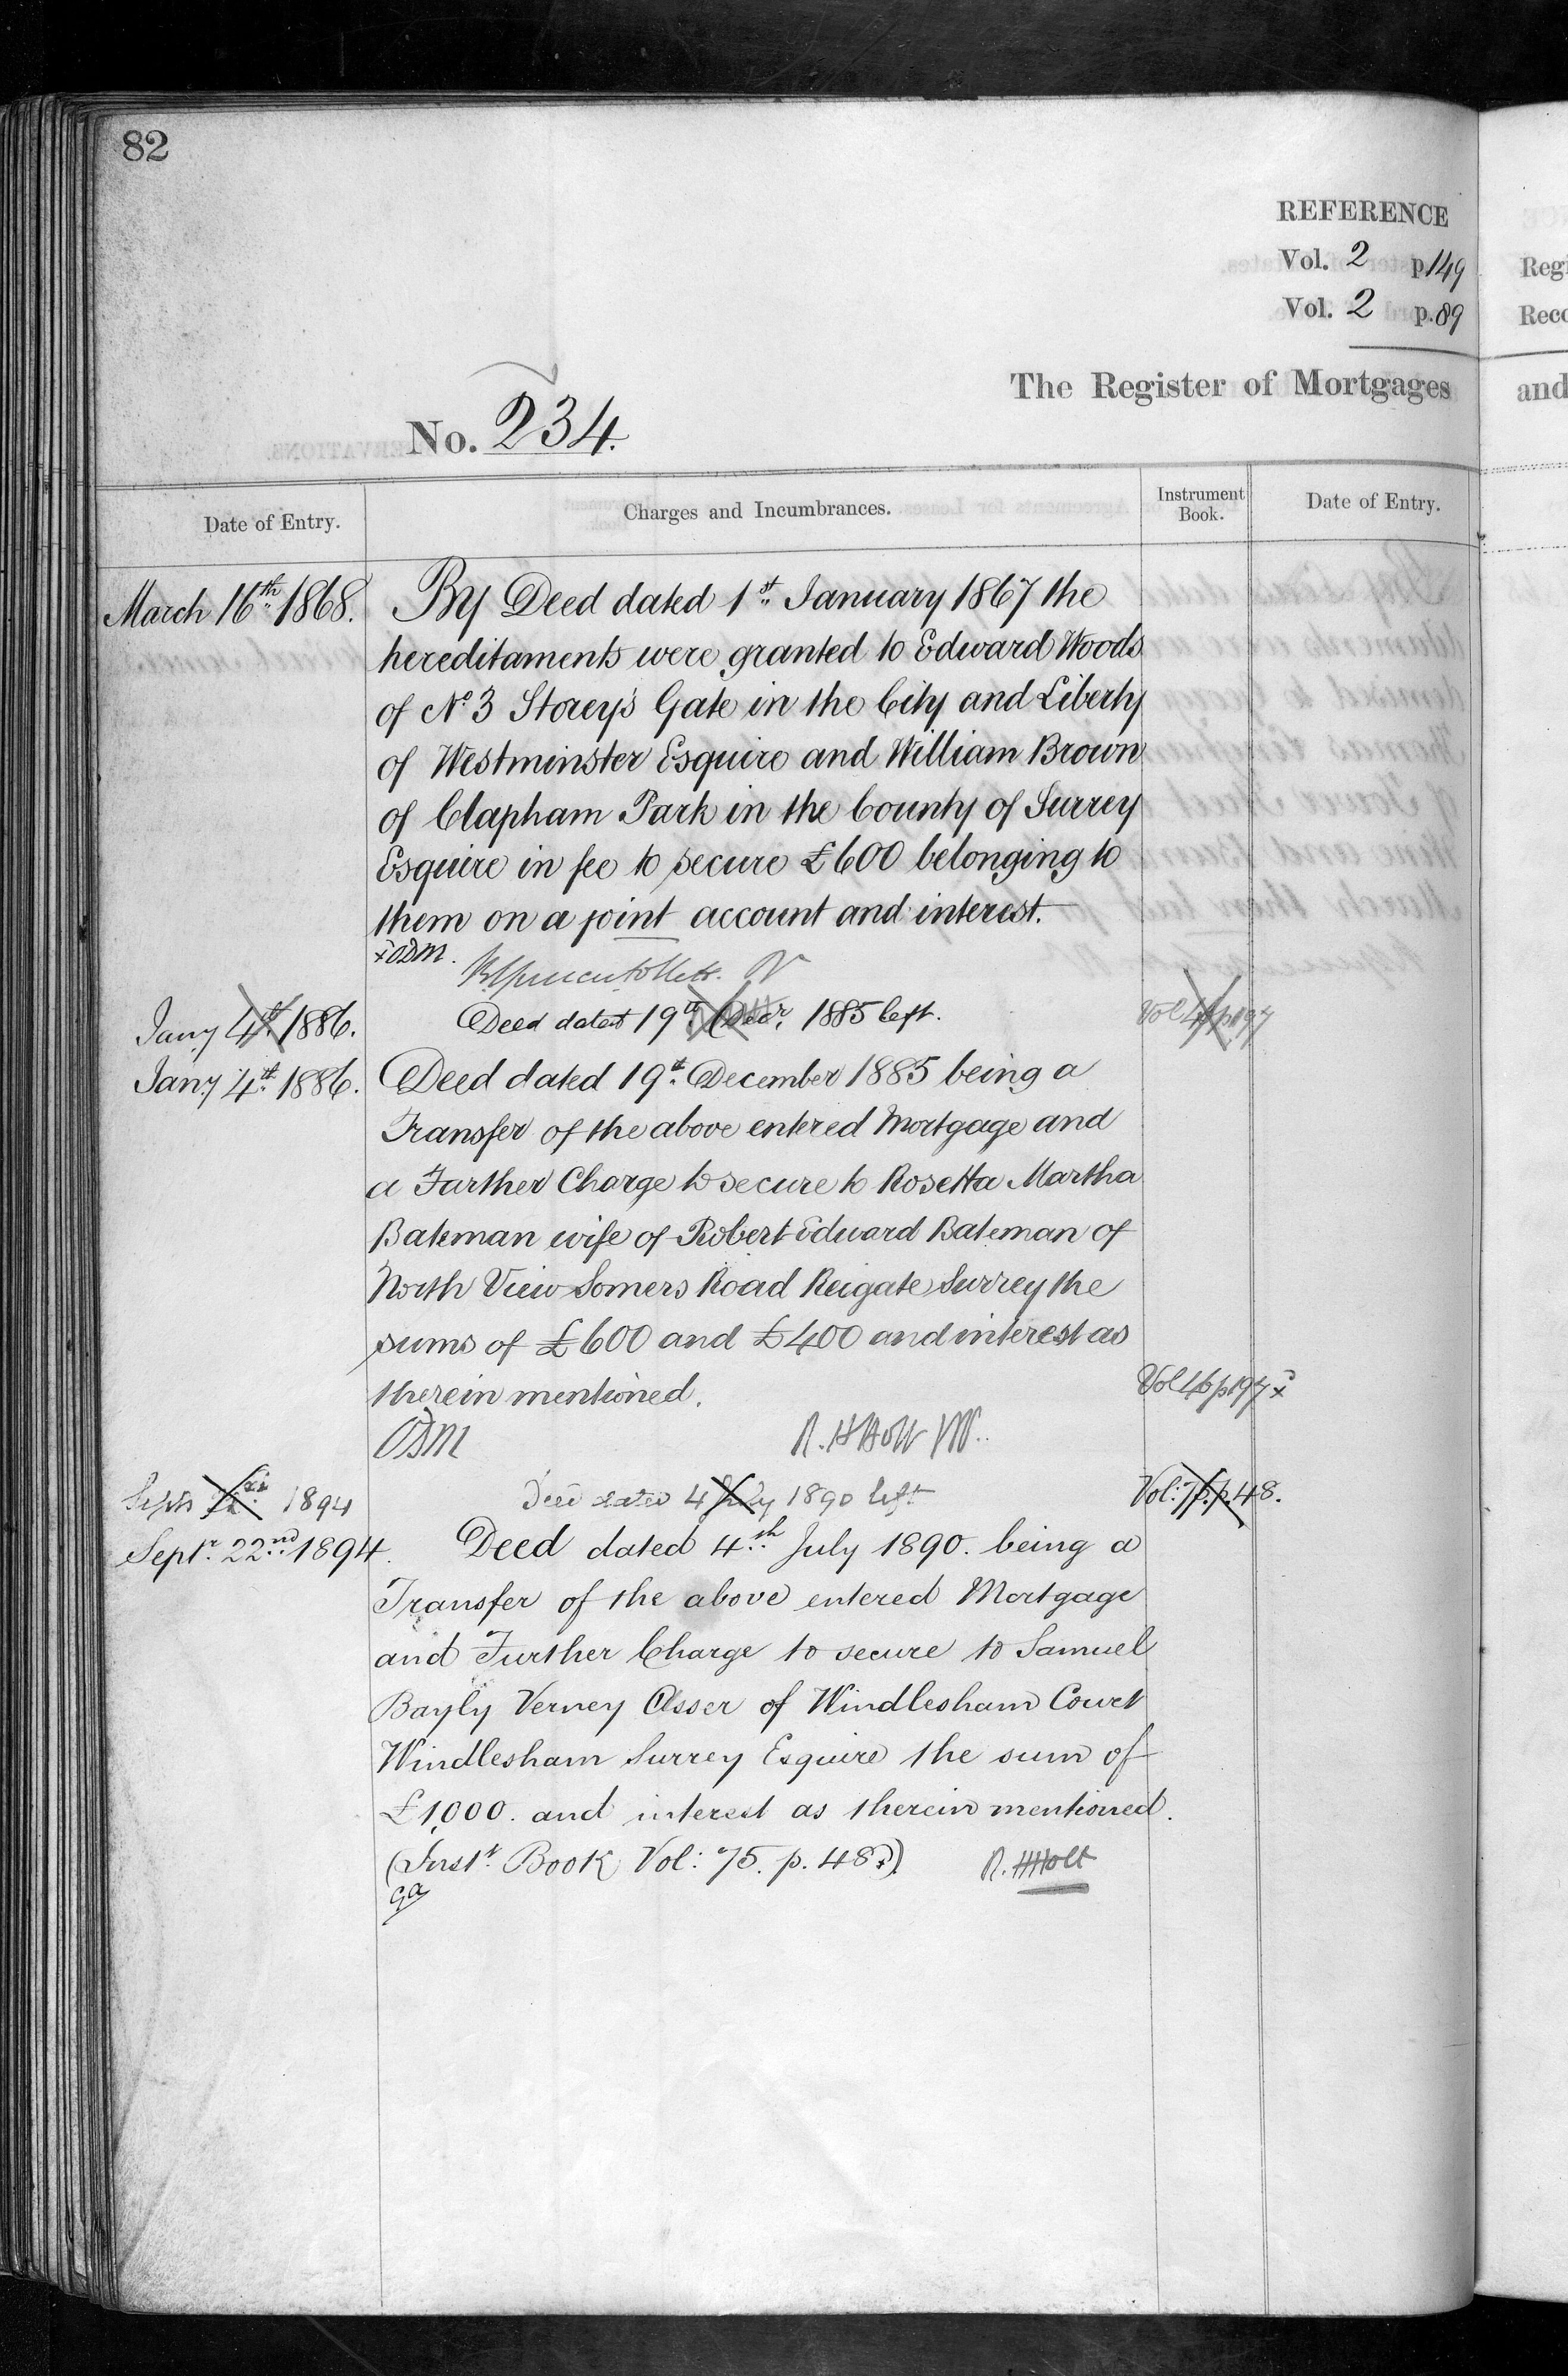 82
REFERENCE
Vol. 2 p.149
Vol. 2 p.89
Regi
Reco
The Register of Mortgages
and
No. 234.
Date of Entry. Charges and Incumbrances. Instrument Book. Date of Entry.
March 16th 1868. By Deed dated 1st January 1867 the
hereditaments were granted to Edward Woods
of No 3 Storey's Gate in the City and Liberty
of Westminster Esquire and William Brown
of Clapham Park in the County of Surrey
Esquire in fee to secure £600 belonging to
them on a joint account and interest.
x ODM.
Jany 4th 1886. Deed dated 19th Decr. 1885 left. Vol 46 p 197
Jany 4th 1886. Deed dated 19th December 1885 being a
Transfer of the above entered Mortgage and
a Further Charge to secure to Rosetta Martha
Bateman wife of Robert Edward Bateman of
North View Somers Road Reigate Surrey the
sums of £600 and £400 and interest as
therein mentioned. Vol 46 p 197 x
ODM R. H Holt
1894 Deed dated 4 July 1890 left Vol: 75. p. 48.
Septr. 22nd 1894. Deed dated 4th July 1890. being a
Transfer of the above entered Mortgage
and Further Charge to secure to Samuel
Bayly Verney Asser of Windlesham Court
Windlesham Surrey Esquire the sum of
£1,000. and interest as therein mentioned.
(Inst. Book Vol: 75. p. 48x). R. H Holt
Ga